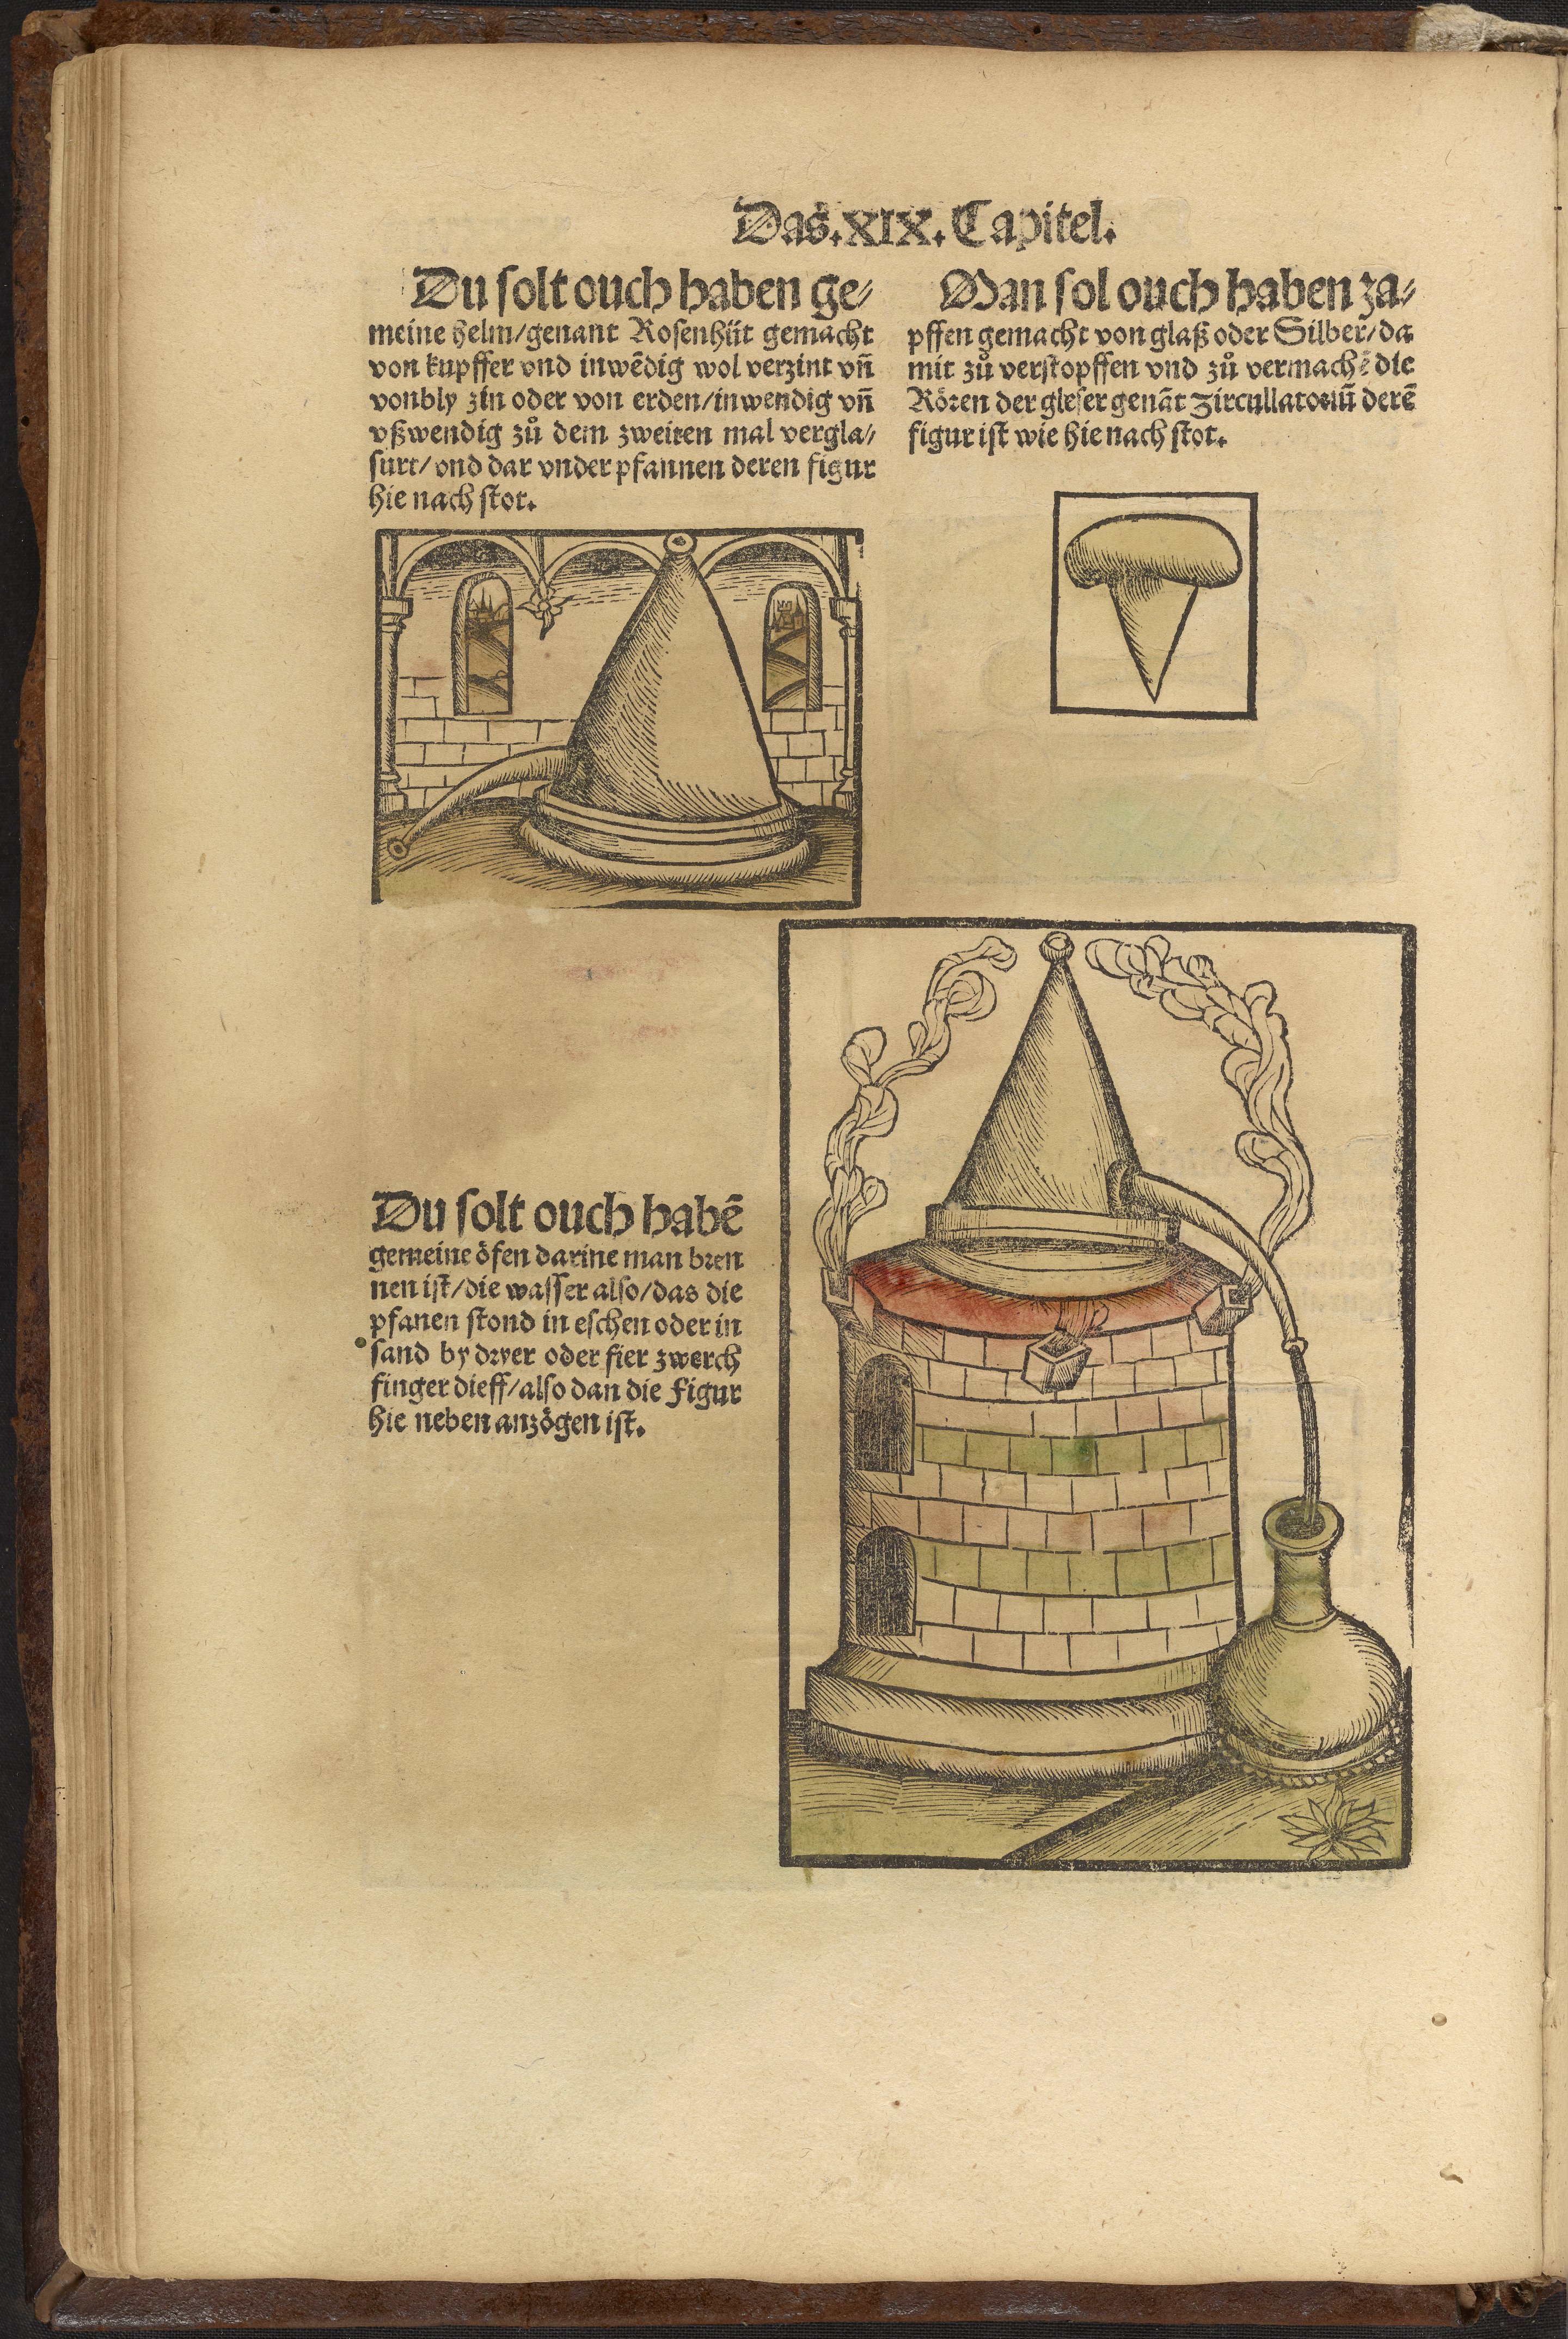 Das.XIX.Capitel.
Du solt ouch haben ge⸗
meine helm/genant Rosenhüt gemacht
von kupffer vnd inwẽdig wol verzint vñ
vonbly zin oder von erden/inwendig vñ
vßwendig zů dem zweiten mal vergla⸗
surt/vnd dar vnder pfannen deren figur
hie nach stot.
Man sol ouch haben za⸗
pffen gemacht von glaß oder Silber/da
mit zů verstopffen vnd zů vermachẽ die
Rören der gleser genãt Zircullatoriũ derẽ
figur ist wie hie nach stot.
Du solt ouch habẽ
gemeine öfen darine man bren
nen ist/die wasser also/das die
pfanen stond in eschen oder in
sand by dryer oder fier zwerch
finger dieff/also dan die Figur
hie neben anzögen ist.